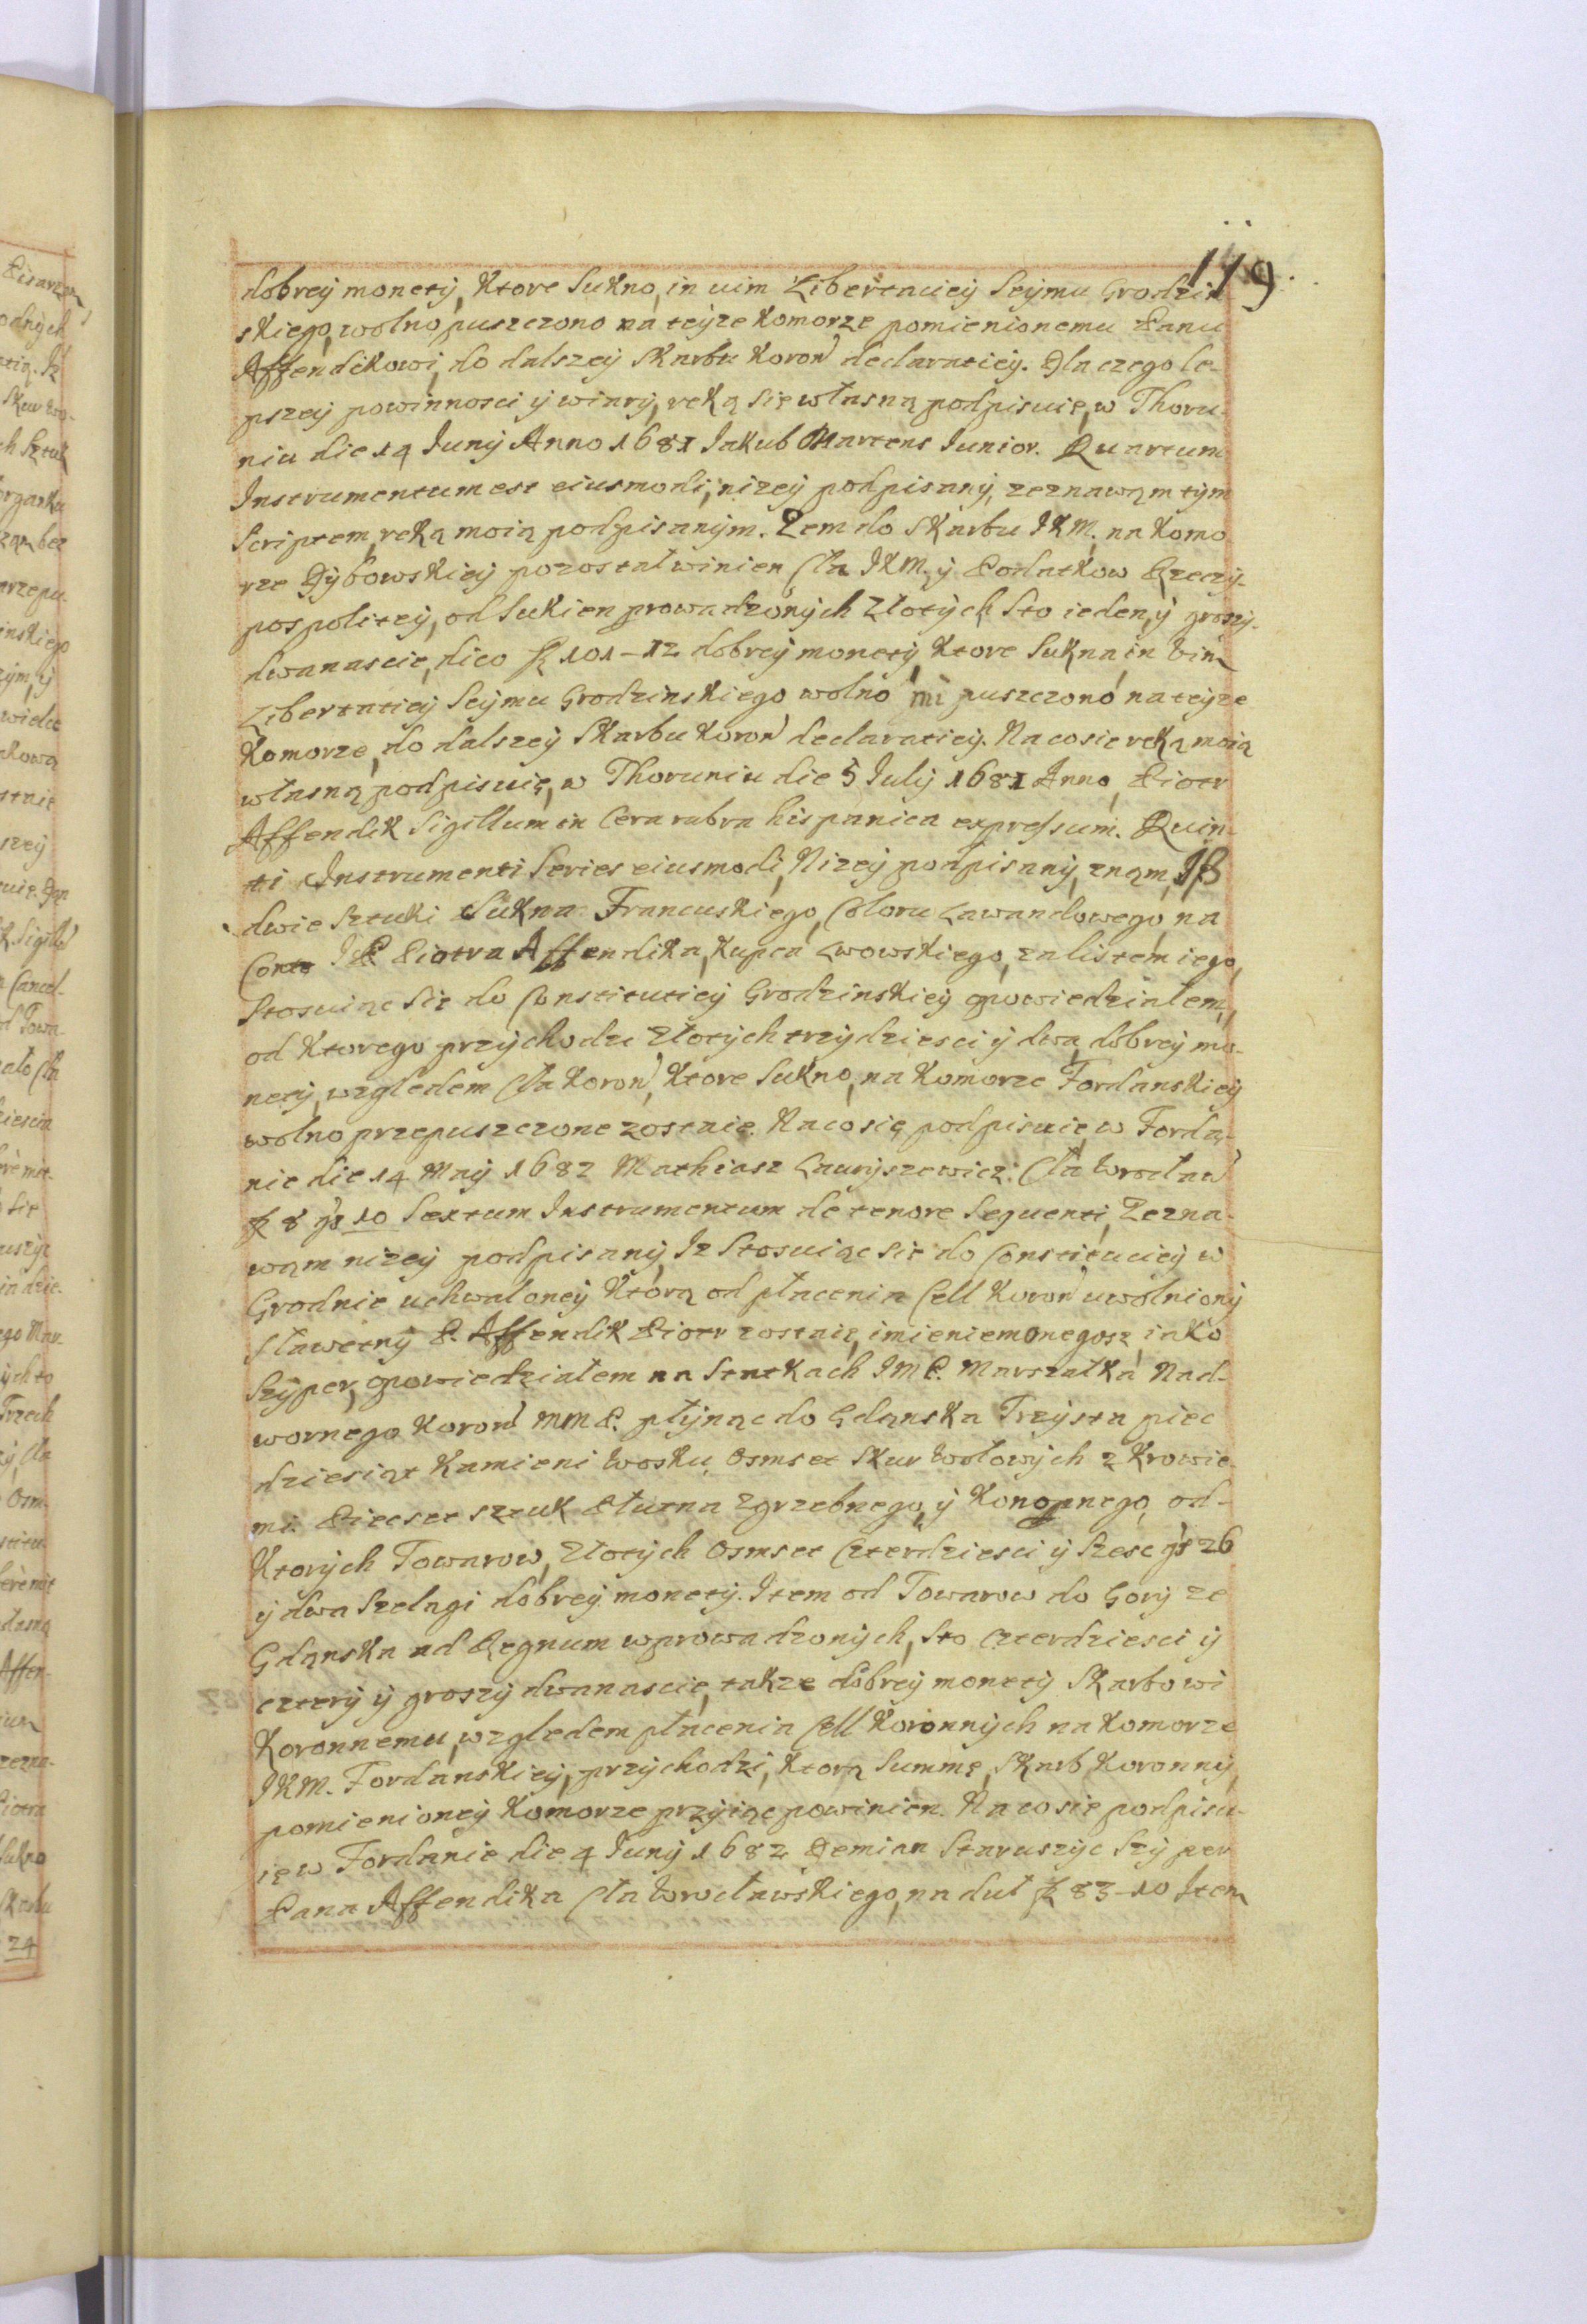 119.
dobrey monety, Ktore Sukno, in uim Libertaciey Seymu Grodzin
skiego, wolno puszczono na teyze Komorze pomienionemu Panu
Affendikowi, do dalszey Skarbu Koron declaratiey. Dla czego le-
pszey powinnosci y wiary, ręką się własną podpisuię, w Thoru-
niu die 14 Juny Anno 1681 Jakub Martens Junior. Quartum
Instrumentum est eiusmodi, nizey podpisany, zeznawąm tym
Scriptem, ręką moią podpisanym. Zem do Skarbu JKM. na Komo
rze Dybowskiey pozostał winien Cła JKM. y Podatkow Rzeczy-
pospolitey, od Sukien prowadzonych Złotych Sto ieden, y groszy
dwanascie, dico fl 101-12 dobrey monety, Ktore Sukna in Vim
Libertatiey Seymu Grodzinskiego wolno mi puszczono, na teyze
Komorze, do dalszey Skarbu Koron declaratiey. Na co się ręką moią
własną podpisuię, w Thoruniu die 5 July 1681 Anno, Piotr
Affendik Sigillum in Cera rubra hispanica expressum. Quin-
ti Instrumenti Series eiusmodi, Nizey podpisany, znąm, Iß
dwie Sztuki Sukna Francuskiego, Coloru Lawandowego, na
Conto JP. Piotra Affendika, Kupca Lwowskiego, za listem iego,
Stosuiąc się do Constitutiey Grodzinskiey opowiedziałem,
od Ktorego przychodzi Złotych trzydziesci y dwa, dobrey mo-
nety, względem Cła Koron, Ktore Sukno, na Komorze Fordanskiey
wolno przepuszczone zostaie. Na co się podpisuię, w Fordą-
nie die 14 May 1682 Mathiasz Lawryszewicz. Cła Wrocław
fl 8 gr 10 Sextum Instrumentum de tenore Sequenti, Zezna-
wąm nizey podpisany, Iz Stosuiąc się do Constituciey w
Grodnie uchwaloney Ktorą od płacenia Cell Koron uwolniony
Sławetny P. Affendik Piotr zostaie, imieniem onegosz, iako
Szyper, opowiedziałem na Statkach JMP. Marszałka Nad-
wornego Koron MMP. płynąc do Gdąnska Trzysta piec
dziesiąt Kamieni Wosku, Osmset Skur Wołowych z Krowie
mi. Piecset sztuk Płutna Zgrzebnego, y Konopnego, od-
Ktorych Towarow, Złotych Osmset Czterdziesci y Szesc gr 26
y dwa Szelągi dobrey monety. Item od Towarow do Gory ze
Gdąnska ad Regnum wprowadzonych, Sto Czterdziesci y
cztery y groszy dwanascie, takze dobrey monety Skarbowi
Koronnemu, względem płacenia Cell Koronnych na Komorze
JKM. Fordanskiey, przychodzi, Ktorą Summę, Skarb Koronny,
pomienioney Komorze przyiąc powinien. Na co się podpisu-
ię w Fordanie die 4 Juny 1682 Demian Staruszyc Szyper
Pana Affendika Cła Wrocławskiego, na dut fl 83-10 Item